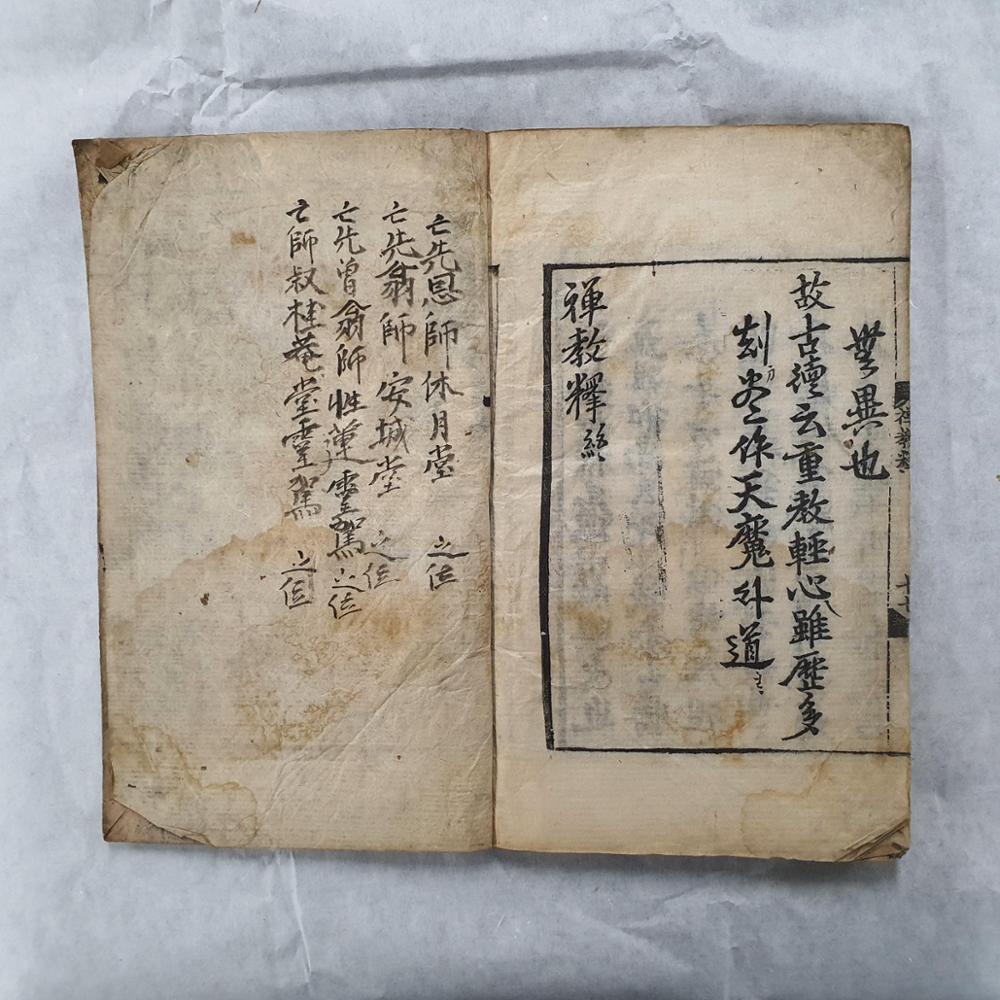 禪教釋
無異也
故古德云重教輕心雖歷多
刧尽作天魔外道
禪教釋終
亡先恩師休月堂 之位
亡先翁師安城堂 之位
亡先曾翁師性蓮靈駕之位
亡師叔桂菴堂靈駕 之位